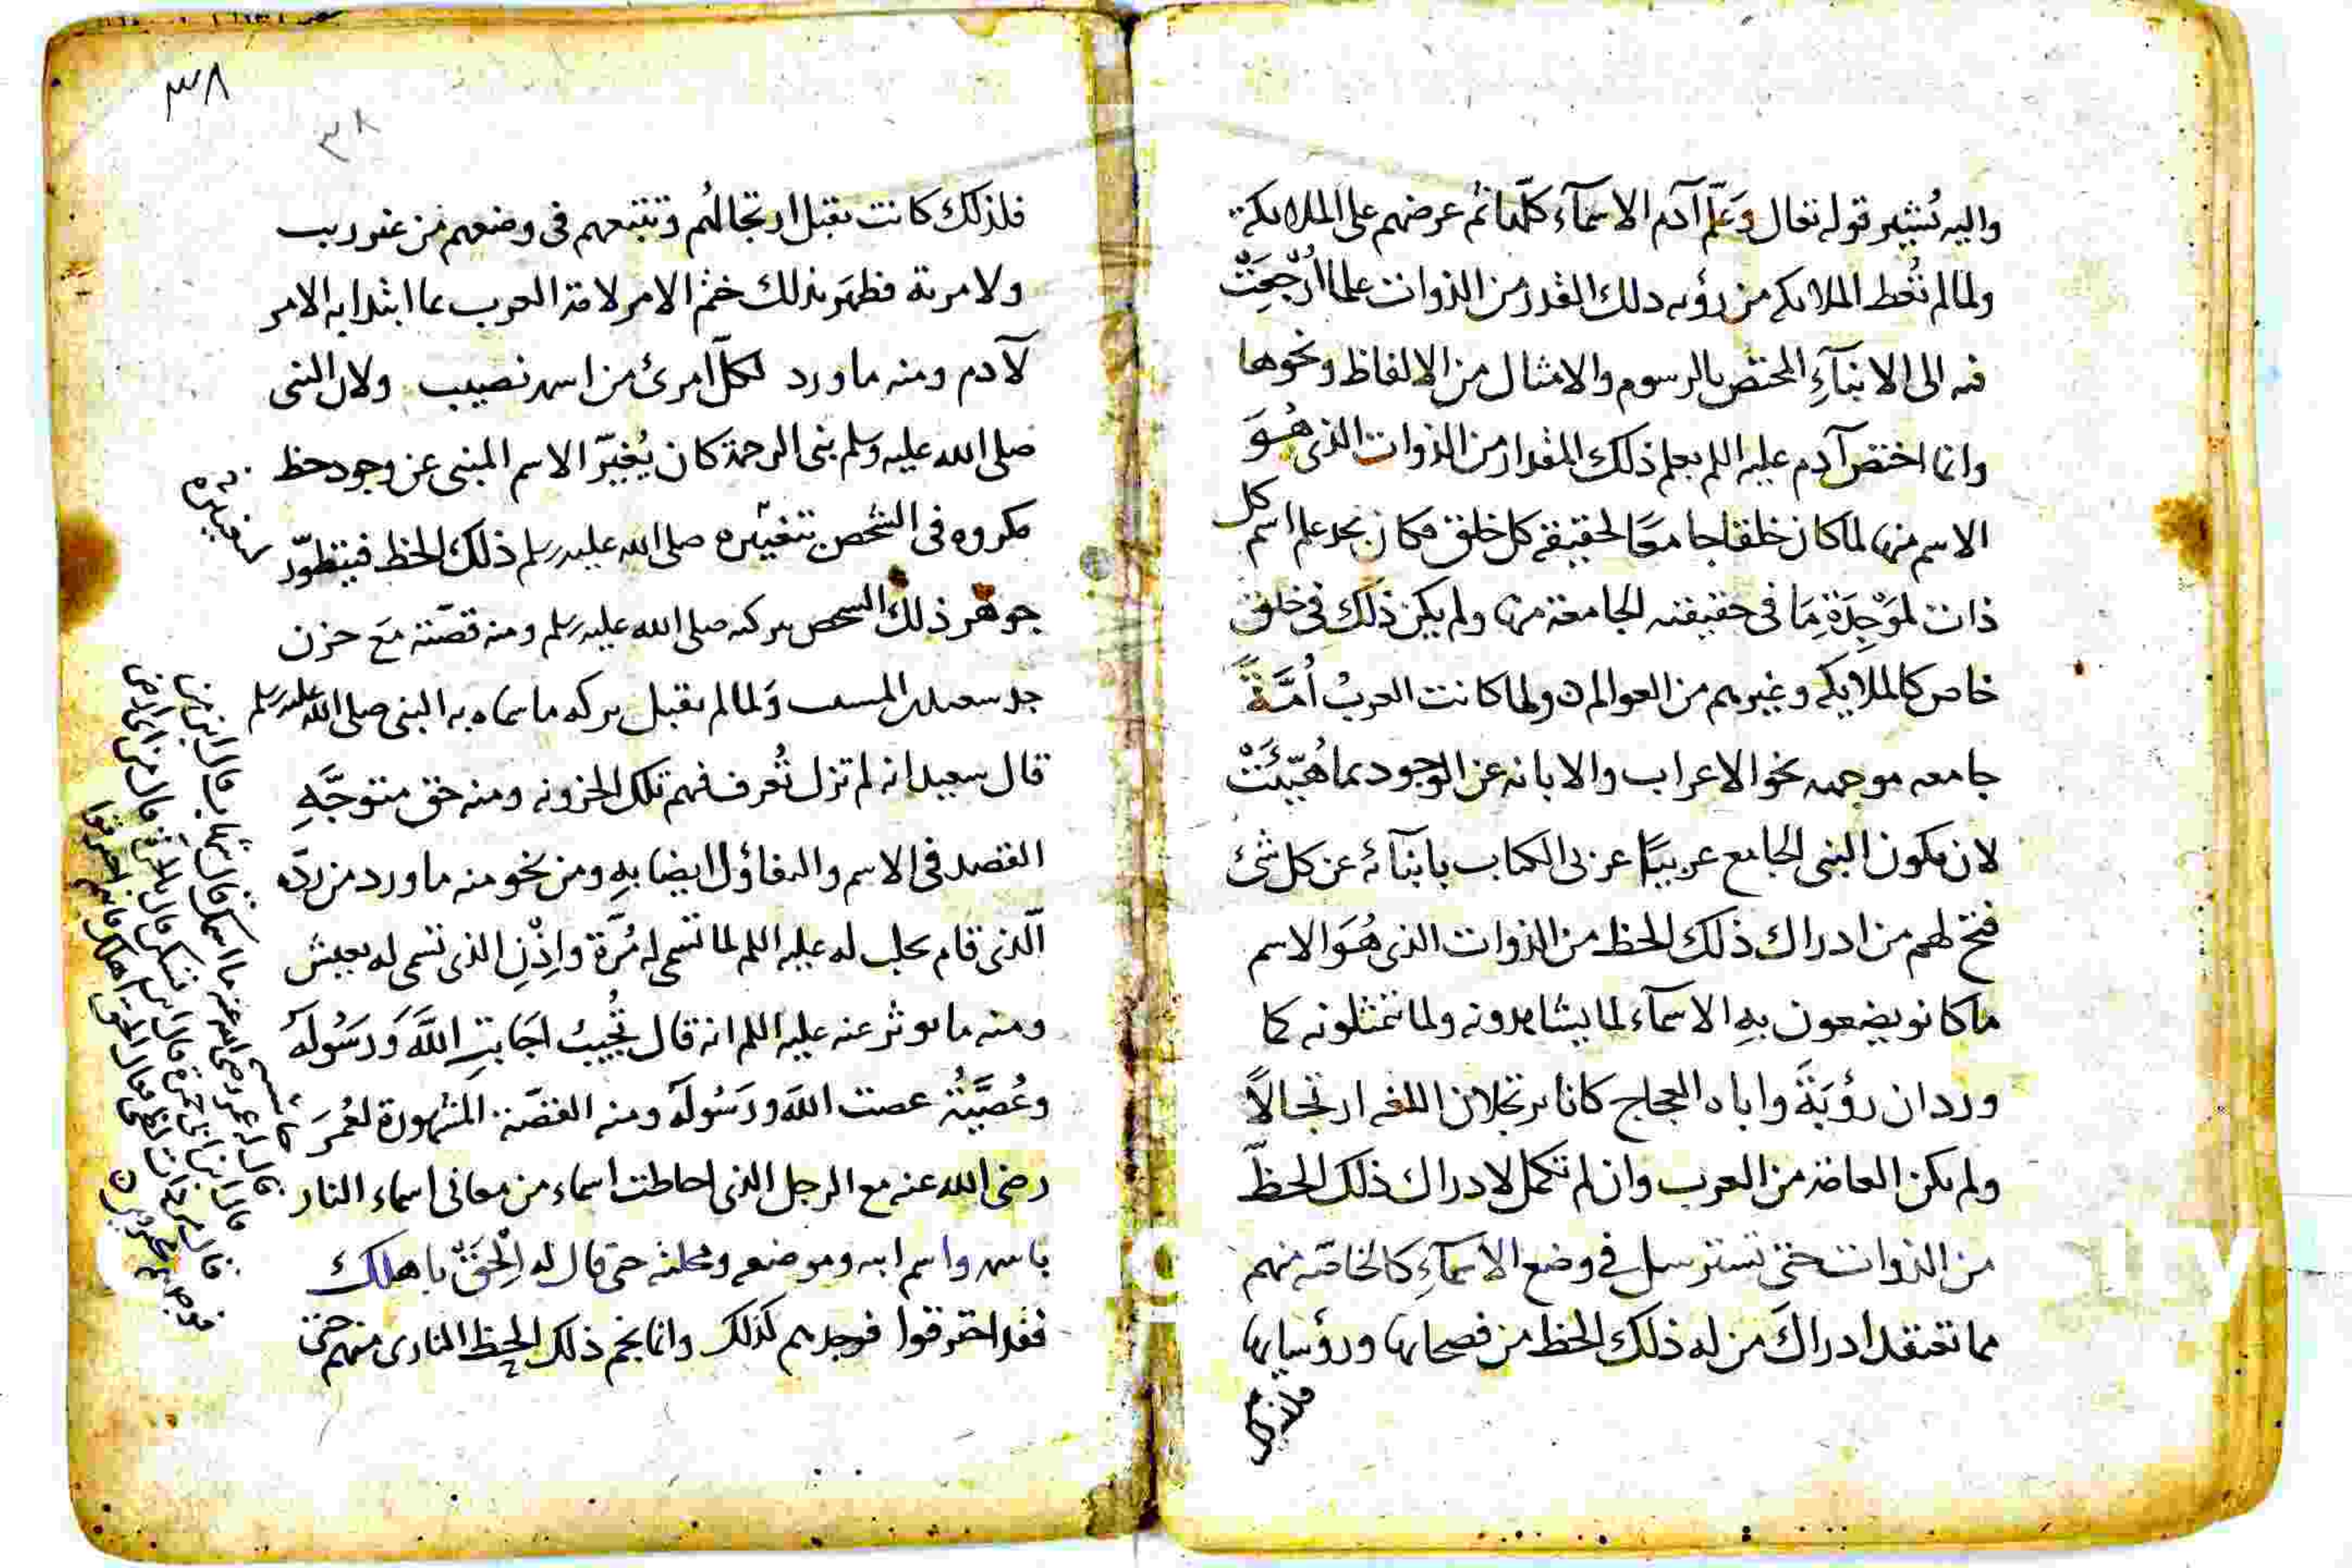 واليه تُشير قوله تعالى وَعَلَّمَ آدم الاسمآء كلّها ثُم عرضهم على الملايكة
ولما لم تُعط الملايكه من رؤيه ذلك القدر من الذوات علما اُرْجِعَتْ
فيه الى الانبآءِ المختص بالرسوم والامثال من الالفاظ ونحوها
وانما اختص آدم عليه اللم بعلم ذلك المقدار من الذوات الذى هُوَ
الاسم منها لما كان خلقا جامعًا لحقيقة كل خلق فكان يجد علم اسم كل
ذات لمَوْجِدَةٍ مَا فى حقيقته الجامعة منها ولم يكن ذلك فى خلق
خاص كالملايكه وغيرهم من العوالم ٥ ولما كانت العربُ اُمَّةً
جامعه موجهه نحو الاعراب والابانه عن الوجود بما هُيّئَتْ
لان يكون النبى الجامع عربيًا عربى الكتاب بابنآئه عن كل شئ
فتح لهم من ادراك ذلك الحظ من الذوات الذى هُوَ الاسم
ما كانو يضعون بهِ الاسمآء لما يشاهدونه ولما تمثلونه كما
ورد ان رؤبَةَ واباه العجاج كانا يرتجلان اللغه ارتجالاً
ولم يكن العامّة من العرب وان لم تكمل لادراك ذلك الحظّ
من الذوات حتى تسترسل فى وضع الاسمآءِ كالخاصّه منهم
مما تعتقد ادراكَ من له ذلك الحظ من فصحايها ورؤسايها
فلذلك
٣٨
٣٨
فلذلك كانت تقبل ارتجالهُم وتتبعهم فى وضعهم من غير ريب
ولا مرية فظهَر بذلك ختم الامر لامة العرب بما ابتدا به الامر
لآدم ومنه ما ورد لكلّ امرئ من اسمه نصيب ولان النبى
صلى الله عليه وسلم نبى الرحمة كان يُغيّر الاسم المنبى عن وجود حظ
مكروه فى الشخص بتغييره صلى الله عليه وسلم ذلك الحظ فيتطوّر
جوهر ذلك الشخص ببركته صلى الله عليه وسلم ومنه قصّته مَع حزن
جد سعيد بن المسيب وَلما لم يقبل بركه ما سماه به النبى صلى الله عليه وسلم
قال سعيد انه لم تزل تُعرف فيهم تلك الحزونه ومنه حق متوجَّهِ
القصد فى الاسم والتفاؤل ايضا بهِ ومن نحو منه ما ورد من ردّه
الّذى قام يحلب له عليه اللم لما تسمى له مُرَّة واِذْنِ الذى تسمى له يعيش
ومنه ما يوثر عنه عليه اللم انه قال تُجُيبُ اجَابتِ اللَّهَ وَرَسُولَه
وعُصَيَّةُ عصت اللَّه ورَسُولَهُ ومنه القصّة المشهورة لعُمرَ
رضى الله عنه مع الرجل الذى احاطت اسماء من معانى اسماء النار
باسمه واسم ابيه وموضعه ومحلته حتى قال له اِلْحَقْ باهلك
فقد احترقوا فوجدهم كذلك وانما نجم ذلك الحظ النارى منهم حتى
قال له عمر رضى الله عنه ما اسمك قال شهاب قال ابن من